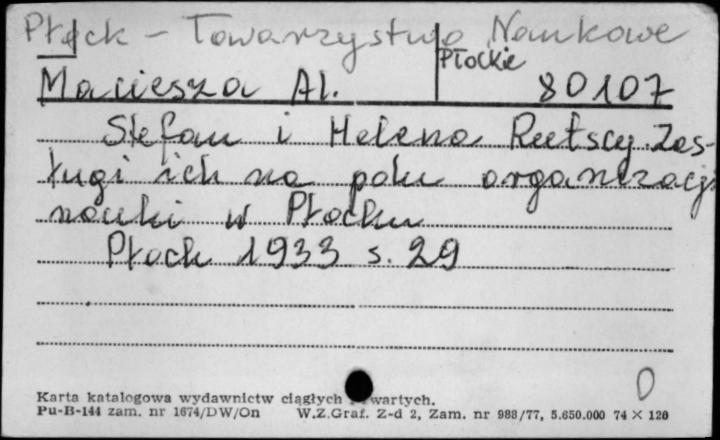 Płock - Towarzystwo Naukowe
Płockie
Maciesza Al. 80107
Stefan i Helena Rutscy. Zas-
ługi ich na polu organizacji
nauki w Płocku
Płock 1933 s. 29
0
Karta katalogowa wydawnictw ciągłych wartych.
Pu-B-144 zam. nr 1674/DW/On W.Z.Graf. Z-d 2, Zam. nr 988/77, 5.650.000 74 × 120